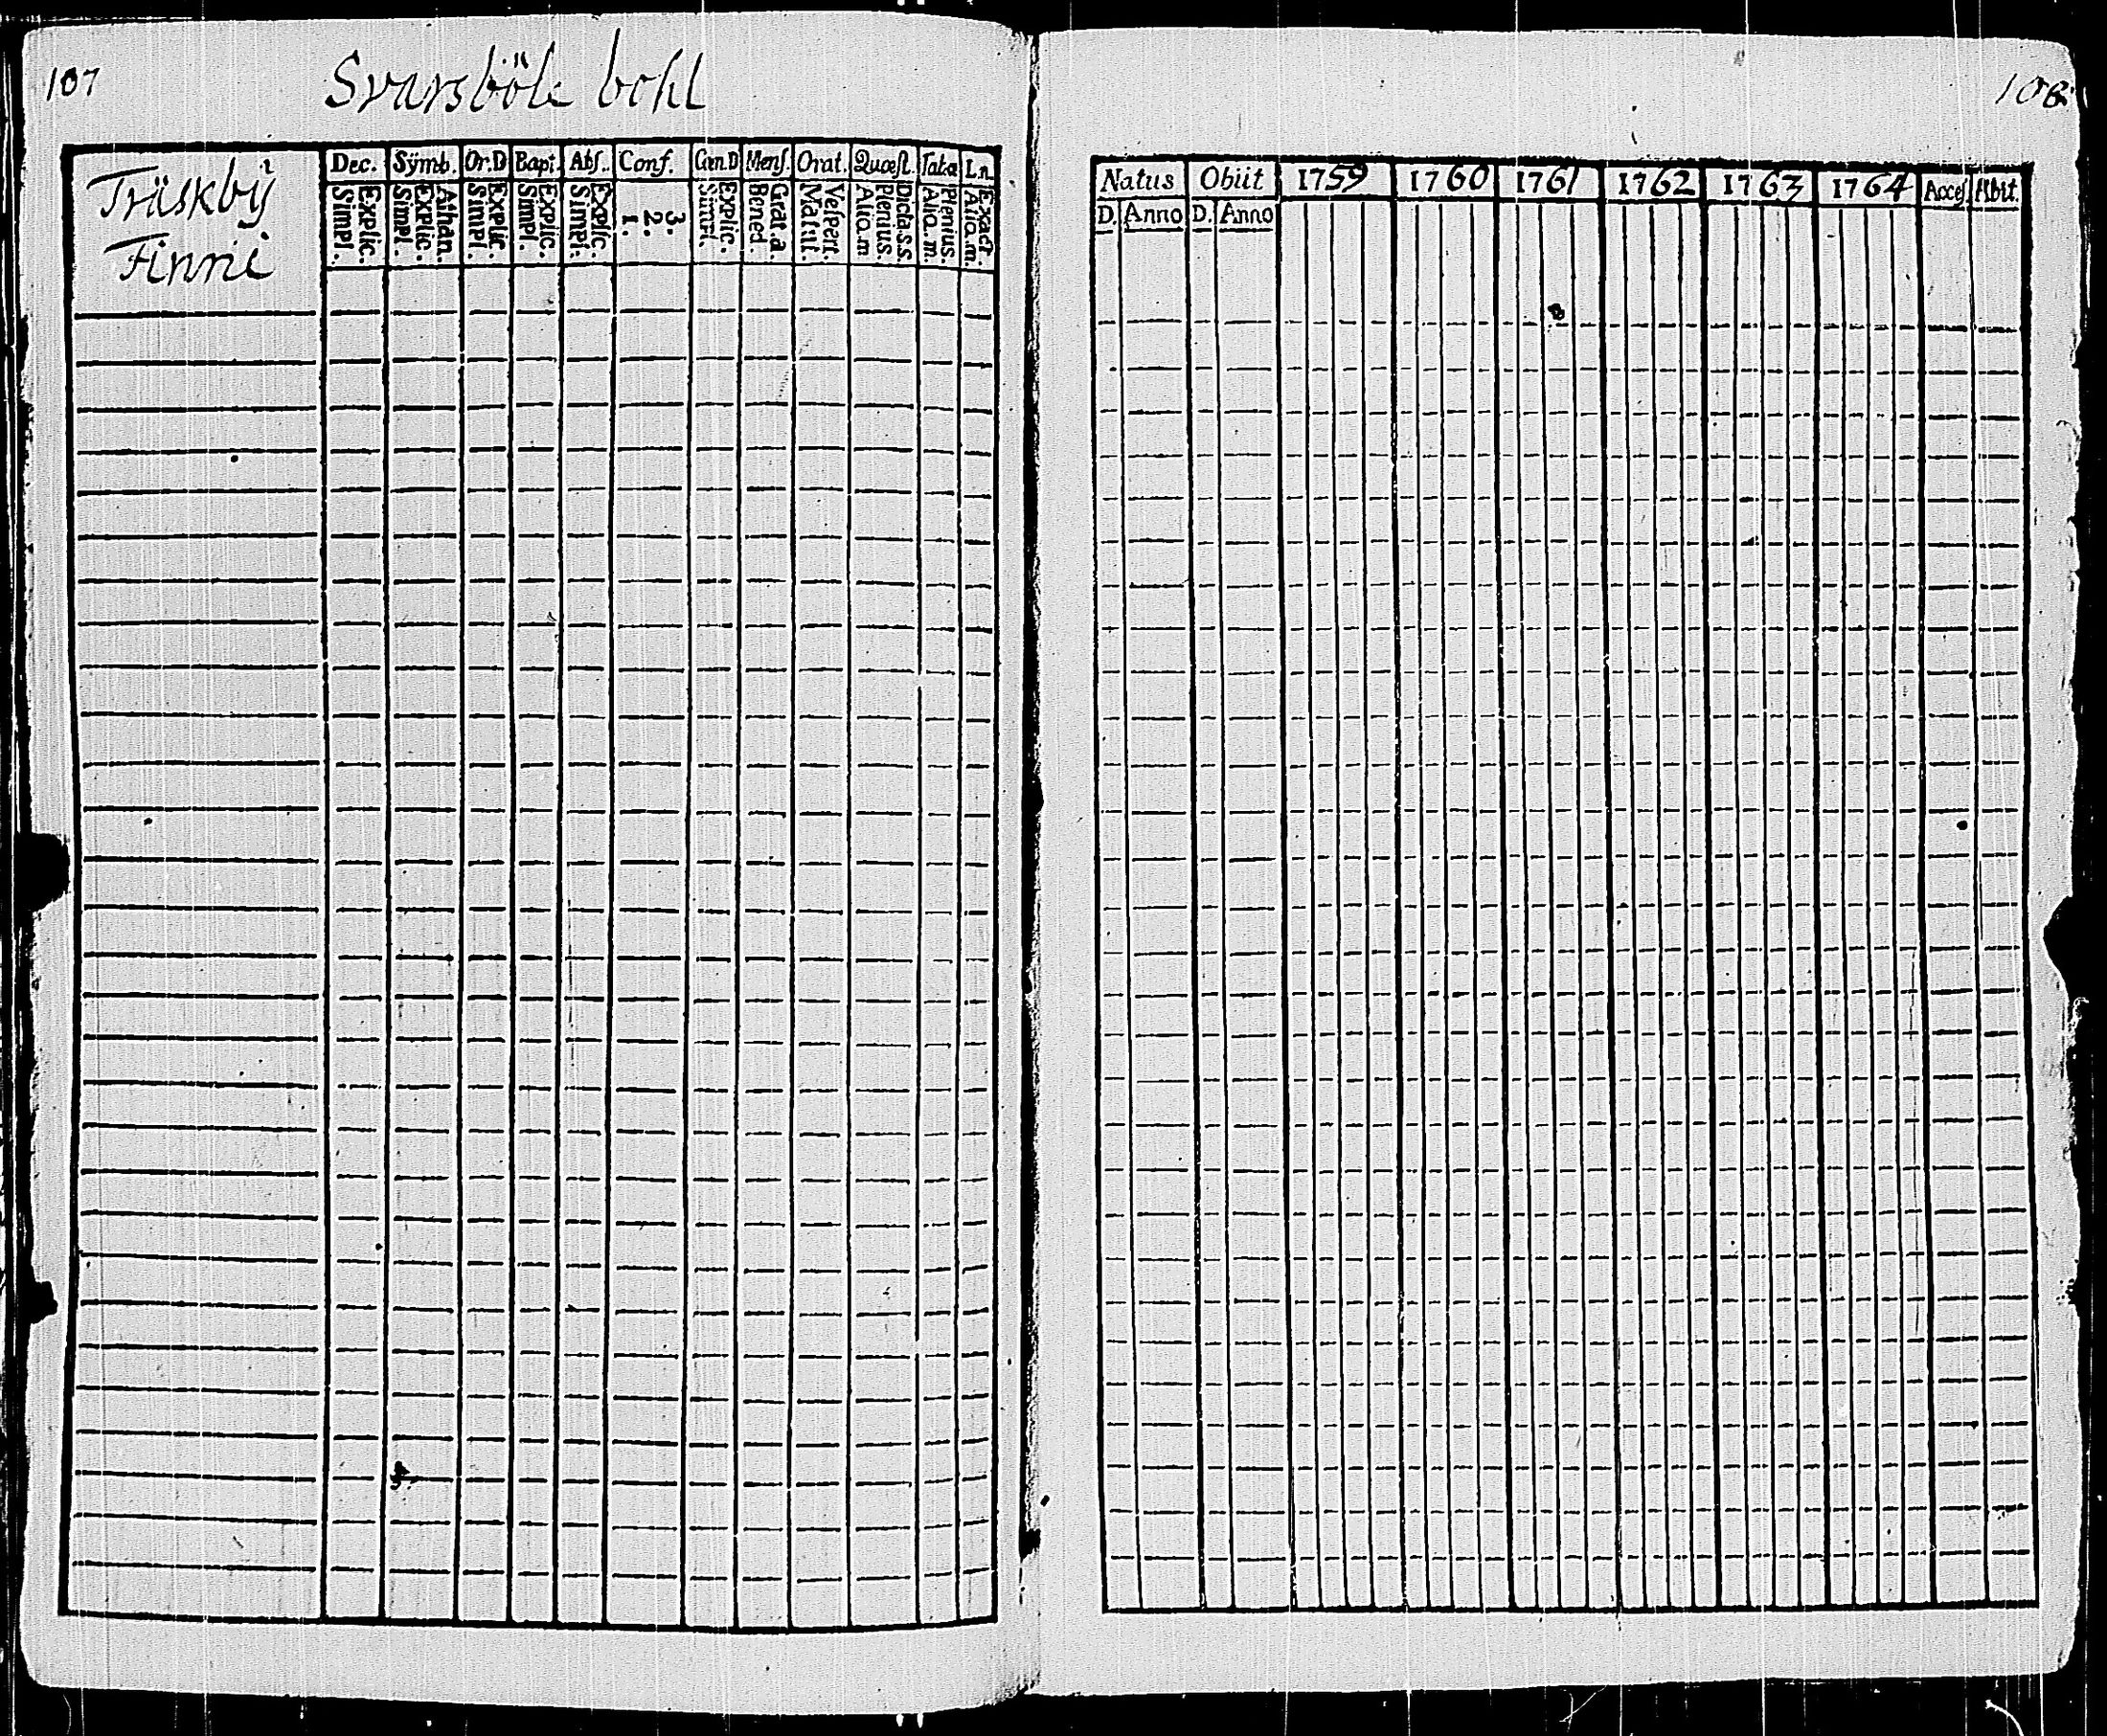 107
Svarsböle bohl
108
Träskbÿ
Finni
Dec. Sÿmb. Or.D Bapt. Abſ. Conf. Cæn.D Menſ. Orat. Quæſt. Tab.a L.n.
Explic. Simpl.
Athan. Explic. Simpl.
Explic. Simpl.
Explic. Simpl.
Explic. Simpl.
3. 2. 1.
Explic. Simpl.
Grat.a. Bened.
Veſpert. Matut.
Dicta.s.s. Plenius. Aliq.m
Plenius. Aliq.m.
Exact. Aliq.m.
Natus Obiit 1759 1760 1761 1762 1763 1764 Acceſ. Abit.
D. Anno D. Anno